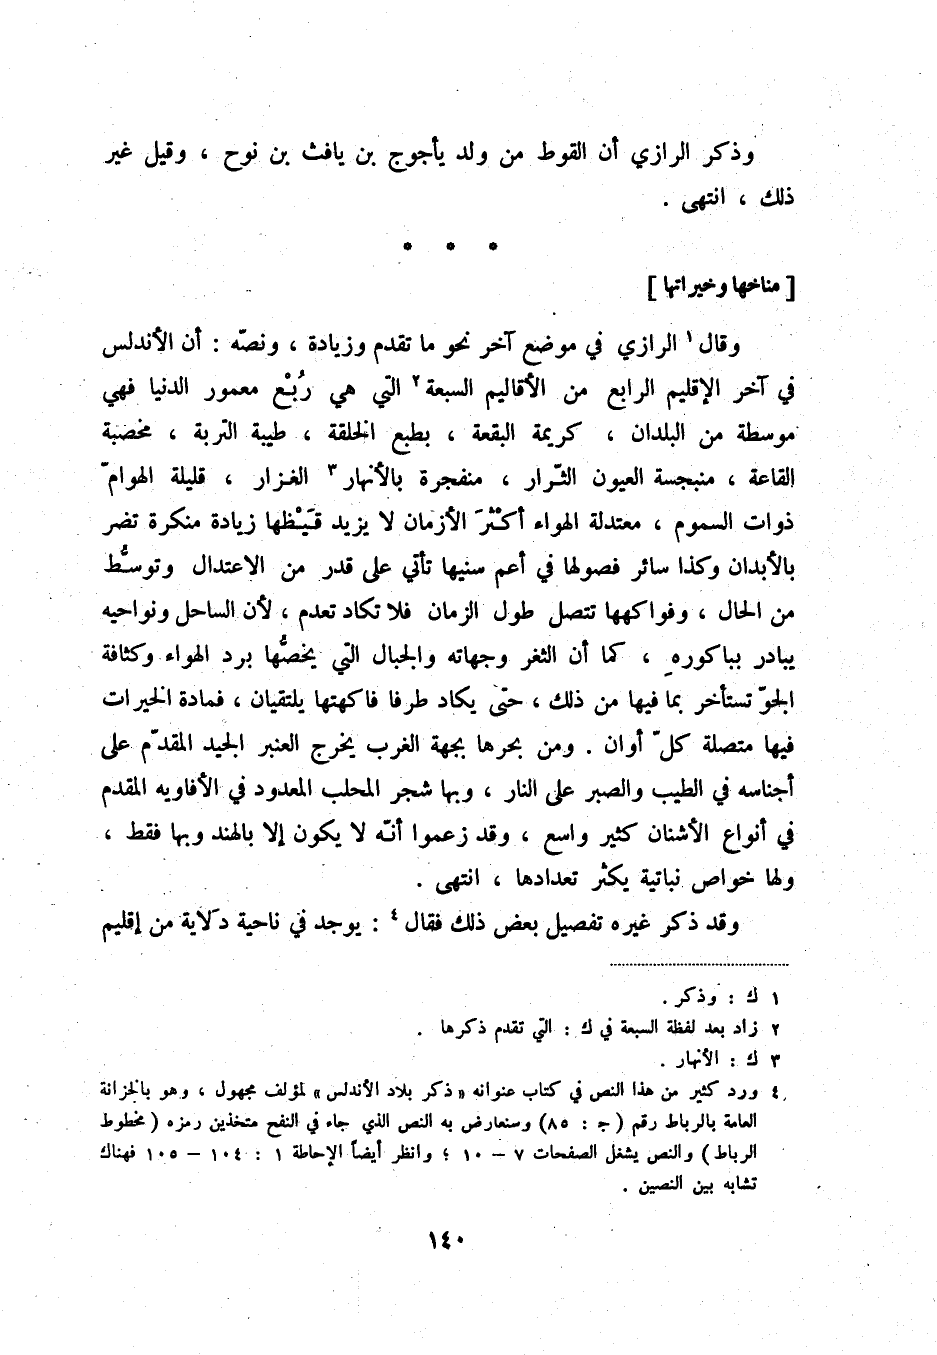 وذكر الرازي أن القوط من ولد يأجوج بن يافث بن نوح ، وقيل غير
ذلك ، انتهى .
* * *
[ مناخها وخيراتها ]
وقال١ الرازي في موضع آخر نحو ما تقدم وزيادة ، ونصّه : أن الأندلس
في آخر الإقليم الرابع من الأقاليم السبعة٢ التي هي رُبْع معمور الدنيا فهي
موسطة من البلدان ، كريمة البقعة ، بطبع الخلقة ، طيبة التربة ، مخصبة
القاعة ، منبجسة العيون الثّرار ، منفجرة بالأنهار٣ الغزار ، قليلة الهوامّ
ذوات السموم ، معتدلة الهواء أكثرَ الأزمان لا يزيد قَيْظها زيادة منكرة تضر
بالأبدان وكذا سائر فصولها في أعم سنيها تأتي على قدر من الاعتدال وتوسُّط
من الحال ، وفواكهها تتصل طول الزمان فلا تكاد تعدم ، لأن الساحل ونواحيه
يبادر بباكوره ، كما أن الثغر وجهاته والجبال التي يخصُّها برد الهواء وكثافة
الجوّ تستأخر بما فيها من ذلك ، حتى يكاد طرفا فاكهتها يلتقيان ، فمادة الخيرات
فيها متصلة كلّ أوان . ومن بحرها بجهة الغرب يخرج العنبر الجيد المقدّم على
أجناسه في الطيب والصبر على النار ، وبها شجر المحلب المعدود في الأفاويه المقدم
في أنواع الأشنان كثير واسع ، وقد زعموا أنّه لا يكون إلا بالهند وبها فقط ،
ولها خواص نباتية يكثر تعدادها ، انتهى .
وقد ذكر غيره تفصيل بعض ذلك فقال٤ : يوجد في ناحية دلاية من إقليم
١ ك : وذكر .
٢ زاد بعد لفظة السبعة في ك : التي تقدم ذكرها .
٣ ك : الأنهار .
٤ ورد كثير من هذا النص في كتاب عنوانه « ذكر بلاد الأندلس » لمؤلف مجهول ، وهو بالخزانة
العامة بالرباط رقم ( ج : ٨٥ ) وسنعارض به النص الذي جاء في النفح متخذين رمزه ( مخطوط
الرباط ) والنص يشغل الصفحات ٧ – ١٠ ؛ وانظر أيضاً الإحاطة ١ : ١٠٤ – ١٠٥ فهناك
تشابه بين النصين .
١٤٠